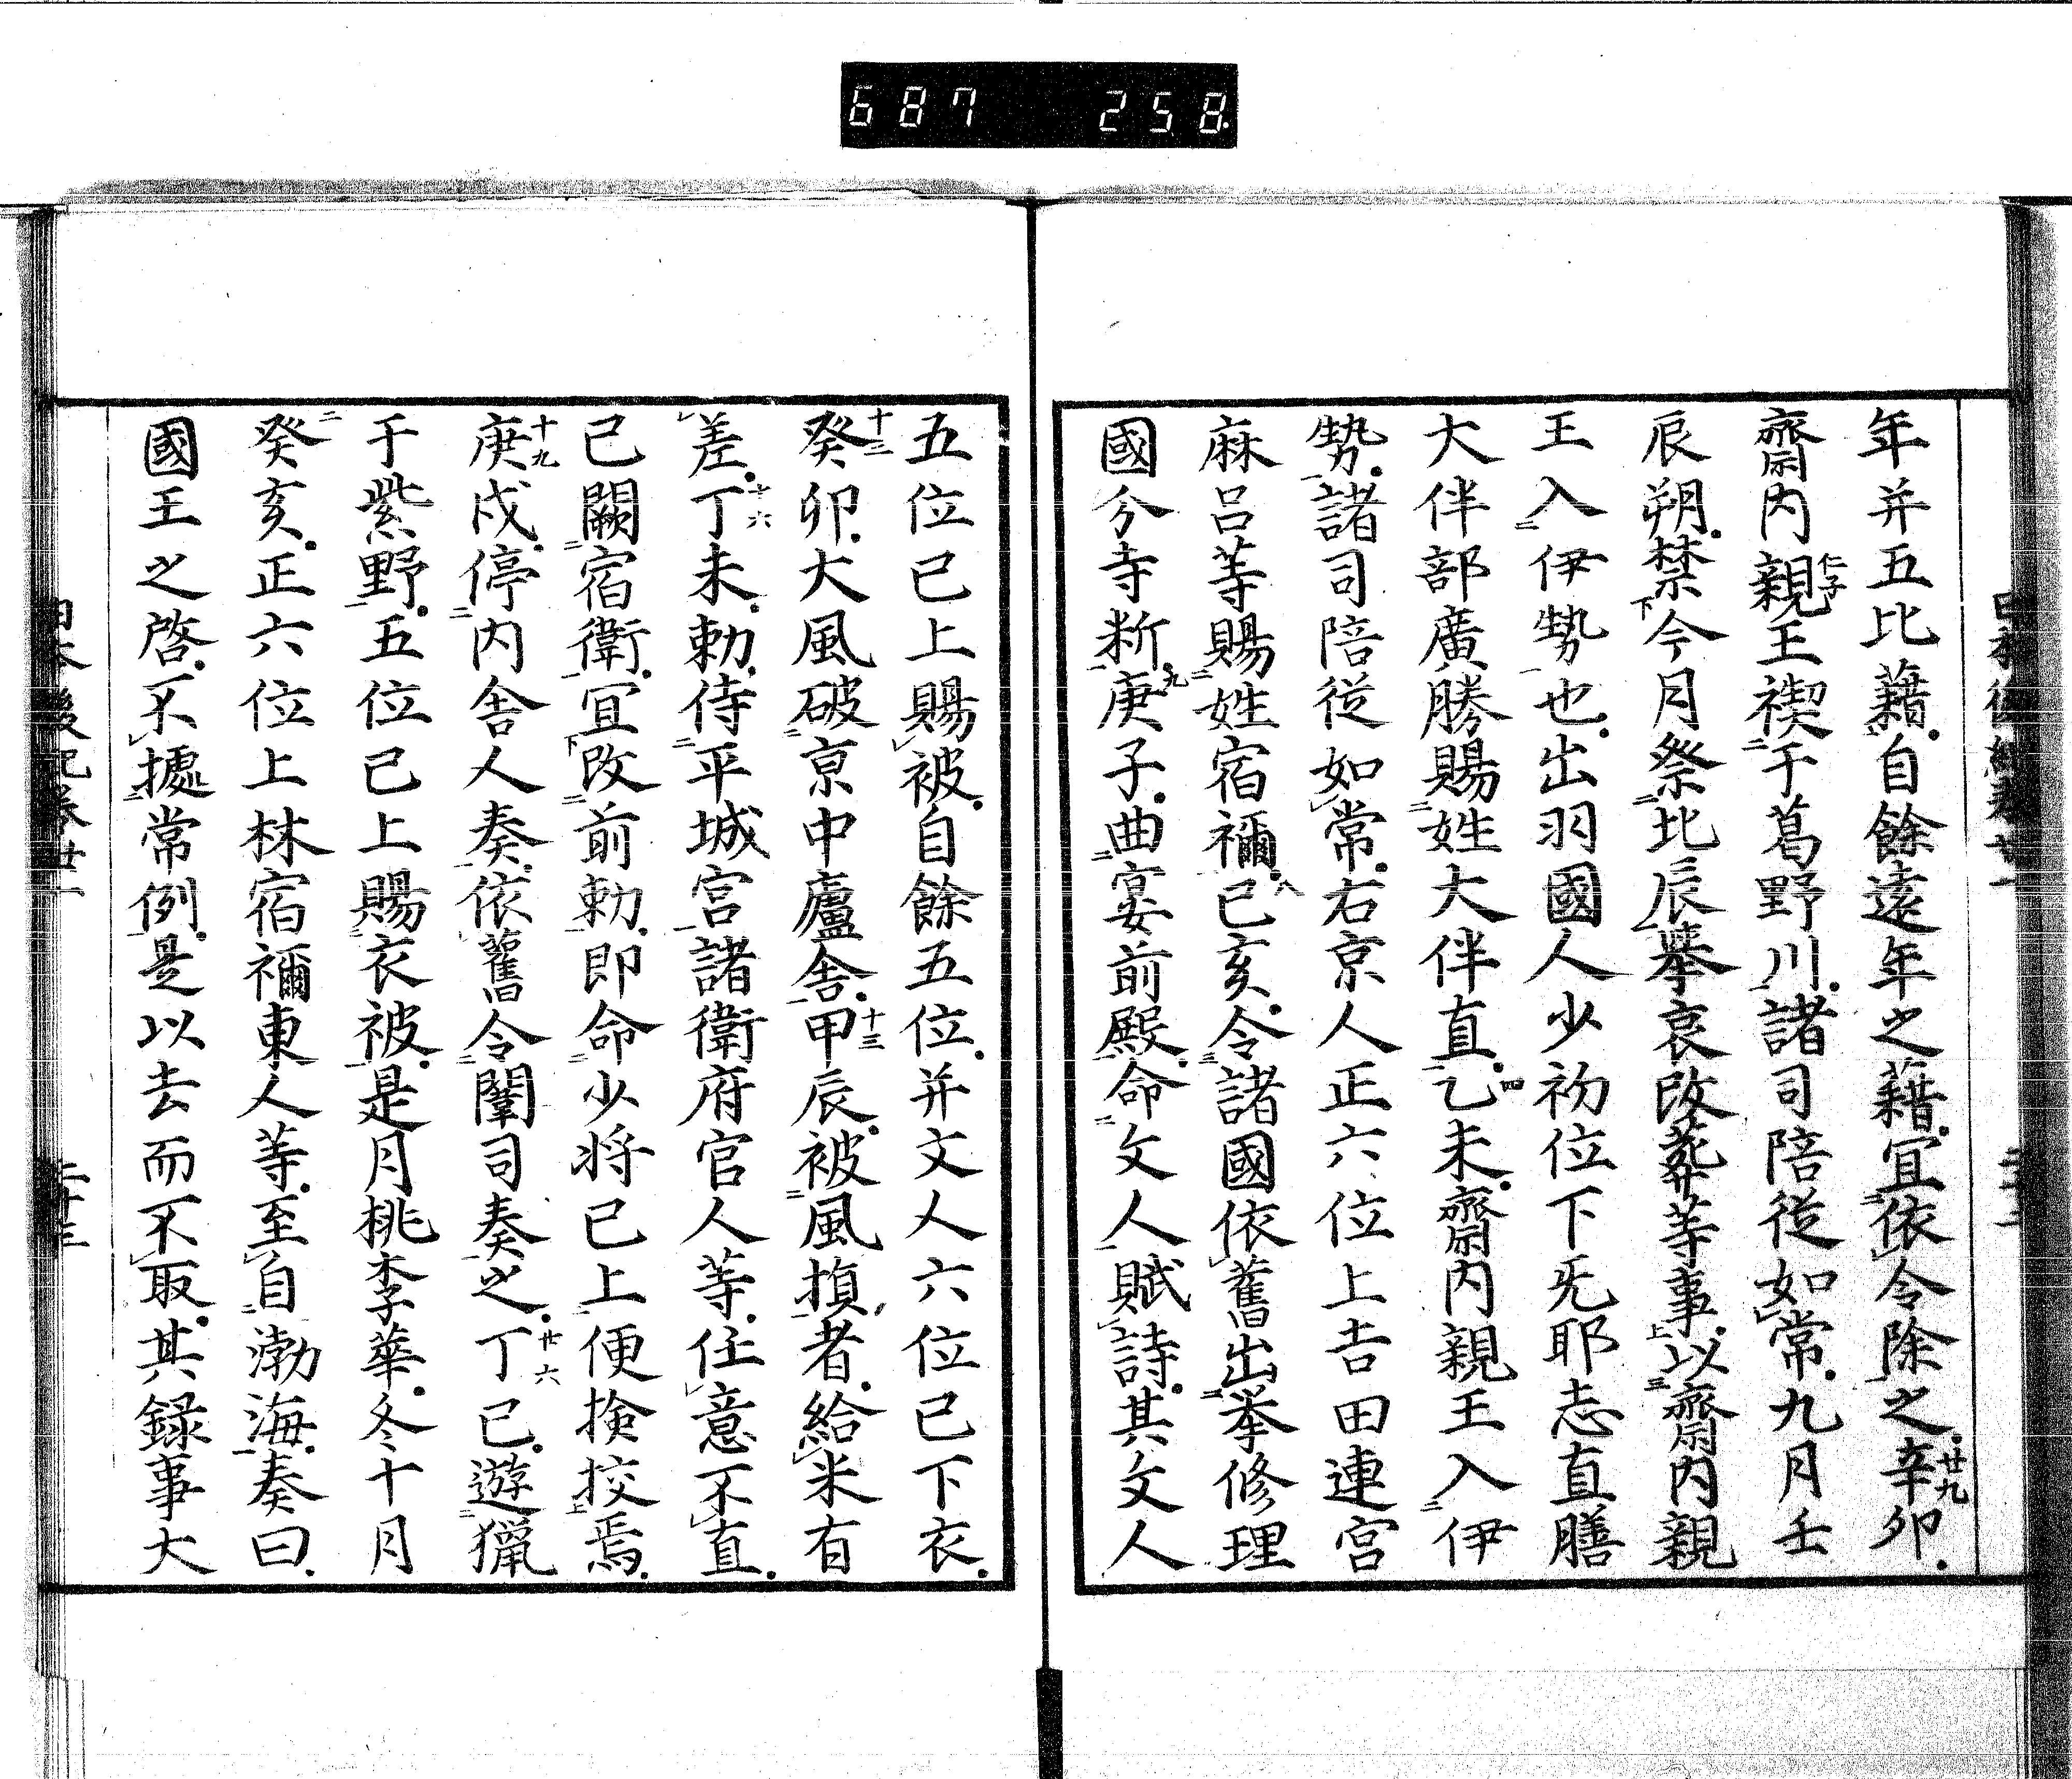 687 258
年并五比藉自餘遠年之藉宜依令除之辛卯
齋内親王禊于葛野川諸司陪從如常九月壬
辰朔禁今月祭北辰擧哀改葬等事以齋内親
王入伊勢也出羽國人少初位下旡耶志直膳
大伴部廣勝賜姓大伴直乙未齋内親王入伊
勢諸司陪從如常右京人正六位上吉田連宮
麻呂等賜姓宿禰己亥令諸國依舊出挙修理
國分寺斯庚子曲宴前殿命文人賦詩其文人
五位已上賜被自餘五位并文人六位已下衣
癸卯大風破亰中廬舎甲辰被風損者給米有
差丁未勅侍平城宮諸衛府官人等任意不直
已闕宿衛宜改前勅即命少将已上便撿挍焉
庚戌停内舎人奏依舊令闈司奏之丁巳遊獵
于紫野五位已上賜衣被是月桃李華冬十月
癸亥正六位上林宿禰東人等至自渤海奏曰
國王之啓不據常例是以去而不取其録事大
日本後紀卷廿一 二十三